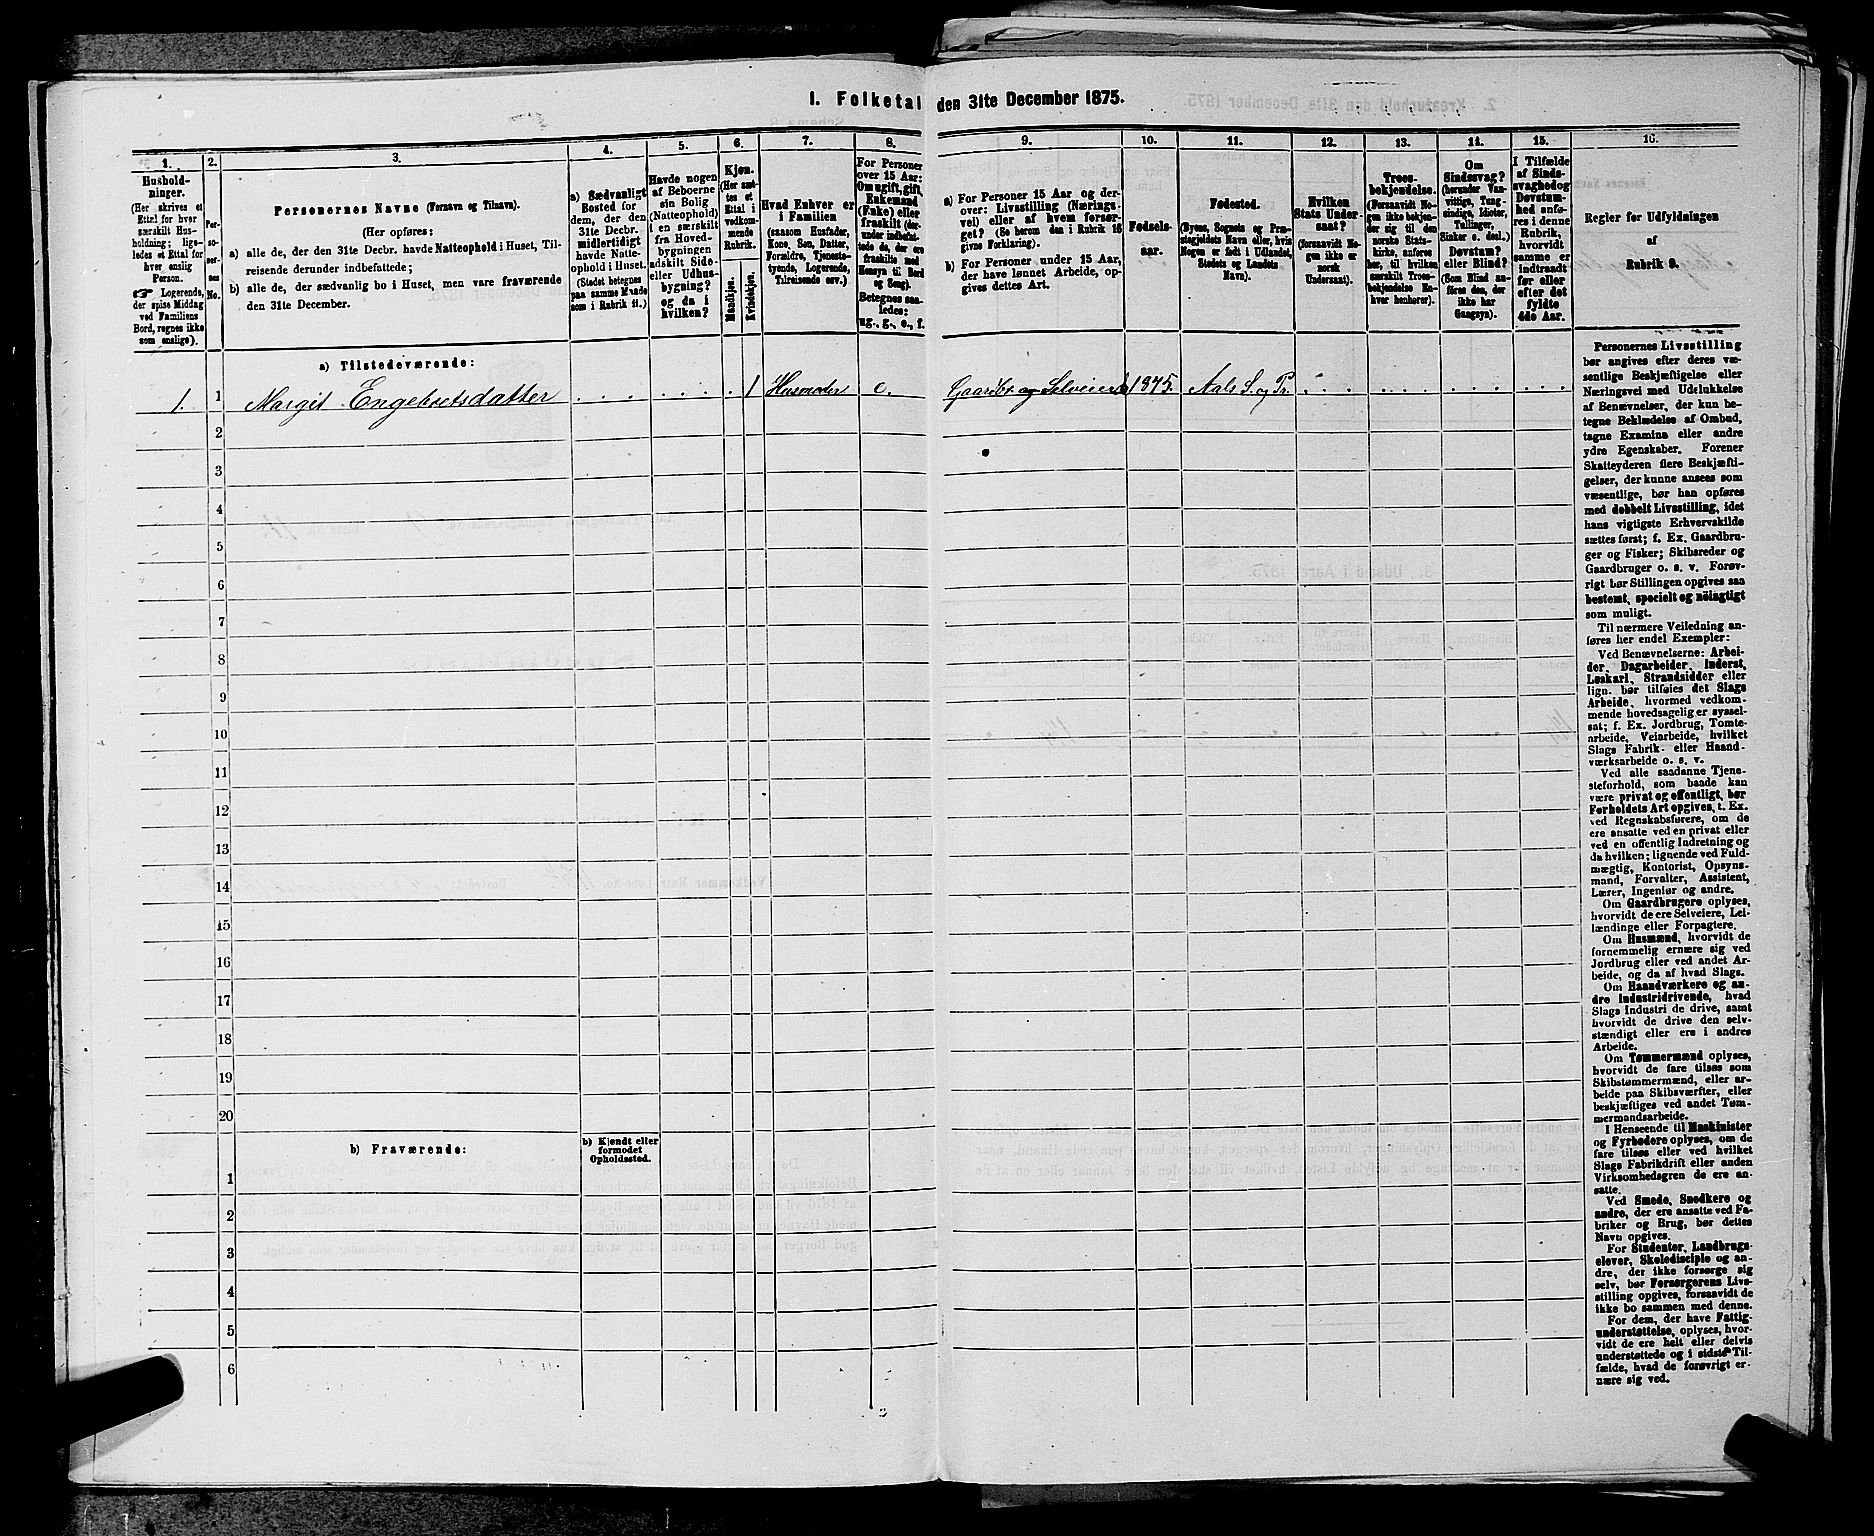 1. Folketal den 31te December 1875.
1. 2. 3. 4. 5. 6. 7. 8. 9. 10. 11. 12. 13. 14. 15. 16.
Hushold-
ninger.
(Her skrives et
Ettal for hver
særskilt Hus-
holdning; lige-
ledes et Ettal for
hver enslig
Person.
☞ Logerende,
der spise Middag
ved Familiens
Bord, regnes ikke
som enslige).
Per-
so-
ner-
nes
No.
Personernes Navne (Fornavn og Tilnavn).
(Her opføres:
a) alle de, der den 31te Decbr. havde Natteophold i Huset, Til-
reisende derunder indbefattede;
b) alle de, der sædvanlig bo i Huset, men vare fraværende
den 31te December.
a) Sædvanligt
Bosted for
dem, der den
31te Decbr.
midlertidigt
havde Natte-
ophold i Huset.
(Stedet betegnes
paa samme Maade
som i Rubrik 11.)
Havde nogen
af Beboerne
sin Bolig
(Natteophold)
i en særskilt
fra Hoved-
bygningen
adskilt Side-
eller Udhus-
bygning?
og da i
hvilken?
Kjøn.
(Her sæt-
tes et
Ettal i
vedkom-
mende
Rubrik.
Mandkjøn.
Kvindekjøn.
Hvad Enhver er
i Familien
(saasom Husfader,
Kone, Søn, Datter,
Forældre, Tjeneste-
tyende, Logerende,
Tilreisende osv.)
For Personer
over 15 Aar:
Om ugift, gift,
Enkemand
(Enke) eller
fraskilt (der-
under indbefat-
tede de, der ere
fraskilte med
Hensyn til Bord
og Seng).
Betegnes saa-
ledes:
ug., g., e., f.
a) For Personer 15 Aar og der-
over: Livsstilling (Nærings-
vei) eller af hvem forsør-
get? (Se herom den i Rubrik 16
givne Forklaring).
b) For Personer under 15 Aar,
der have lønnet Arbeide, op-
gives dettes Art.
Fødsels-
aar.
Fødested.
(Byens, Sognets og Præ-
stegjeldets Navn eller, hvis
Nogen er født i Udlandet,
Stedets og Landets
Navn).
Hvilken
Stats Under-
saat?
(forsaavidt No-
gen ikke er
norsk
Undersaat).
Troes-
bekjendelse.
(Forsaavidt No-
gen ikke bekjen-
der sig til den
norske Stats-
kirke, anføres
her, til hvilken
særskilt Troes-
bekjendelse En-
hver henhører).
Om
Sindssvag?
(herunder Van-
vittige, Tung-
sindige, Idioter,
Tullinger,
Sinker o. desl.)
Døvstum?
eller Blind?
(Som Blind an-
føres den, der
ikke har
Gangsyn).
I Tilfælde
af Sinds-
svaghed og
Døvstum-
hed anfø-
res i denne
Rubrik,
hvorvidt
samme er
indtraadt
før eller
efter det
fyldte
4de Aar.
Regler for Udfyldningen
af
Rubrik 9.
a) Tilstedeværende:
1. 1 Margit Engebretsdatter 1 Husmoder e. Gaardbr. og Selveier 1875. Aals S. og Pr.
2
3
4
5
6
7
8
9
10
11
12
13
14
15
16
17
18
19
20
b) Fraværende:
b) Kjendt eller
formodet
Opholdssted.
1
2
3
4
5
6
Personernes Livsstilling
bør angives efter deres væ-
sentlige Beskjæftigelse eller
Næringsvei med Udelukkelse
af Benævnelser, der kun be-
tegne Beklædelse af Ombud,
tagne Examina eller andre
ydre Egenskaber. Forener
Skatteyderen flere Beskjæfti-
gelser, der kunne ansees som
væsentlige, bør han opføres
med dobbelt Livsstilling, idet
hans vigtigste Erhvervskilde
sættes først; f. Ex. Gaardbru-
ger og Fisker; Skibsreder og
Gaardbruger o. s. v. Forøv-
rigt bør Stillingen opgives saa
bestemt, specielt og nøiagtigt
som muligt.
Til nærmere Veiledning an-
føres her endel Exempler:
Ved Benævnelserne: Arbei-
der, Dagarbeider, Inderst,
Løskarl, Strandsidder eller
lign. bør tilføies det Slags
Arbeide, hvormed vedkom-
mende hovedsagelig er syssel-
sat; f. Ex. Jordbrug, Tomte-
arbeide, Veiarbeide, hvilket
Slags Fabrik- eller Haand-
værksarbeide o. s. v.
Ved alle saadanne Tjene-
steforhold, som baade kan
være privat og offentligt, bør
Forholdets Art opgives, t. Ex.
ved Regnskabsførere, om de
ere ansatte ved en privat eller
ved en offentlig Indretning og
da hvilken; lignende ved Fuld-
mægtig, Kontorist, Opsyns-
mand, Forvalter, Assistent,
Lærer, Ingeniør og andre.
Om Gaardbrugere oplyses,
hvorvidt de ere Selveiere, Lei-
lændinge eller Forpagtere.
Om Husmænd, hvorvidt de
fornemmelig ernære sig ved
Jordbrug eller ved andet Ar-
beide, og da af hvad Slags.
Om Haandværkere og an-
dre Industridrivende, hvad
Slags Industri de drive, samt
hvorvidt de drive den selv-
stændigt eller ere i andres
Arbeide.
Om Tømmermænd oplyses,
hvorvidt de fare tilsøs som
Skibstømmermænd, eller ar-
beide paa Skibsværfter, eller
beskjæftiges ved andet Tøm-
mermandsarbeide.
I Henseende til Maskinister
og Fyrbødere oplyses, om de
fare tilsøs eller ved hvilket
Slags Fabrikdrift eller anden
Virksomhedsgren de ere an-
satte.
Ved Smede, Snedkere og
andre, der ere ansatte ved Fa-
briker og Brug, bør dettes
Navn opgives.
For Studenter, Landbrugs-
elever, Skoledisciple og an-
dre, der ikke forsørge sig
selv, bør Forsørgerens Livs-
stilling opgives, forsaavidt de
ikke bo sammen med denne.
For dem, der have Fattig-
understøttelse, oplyses, hvor-
vidt de ere helt eller delvis
understøttede og i sidste Til-
fælde, hvad de forøvrigt er-
nære sig ved.